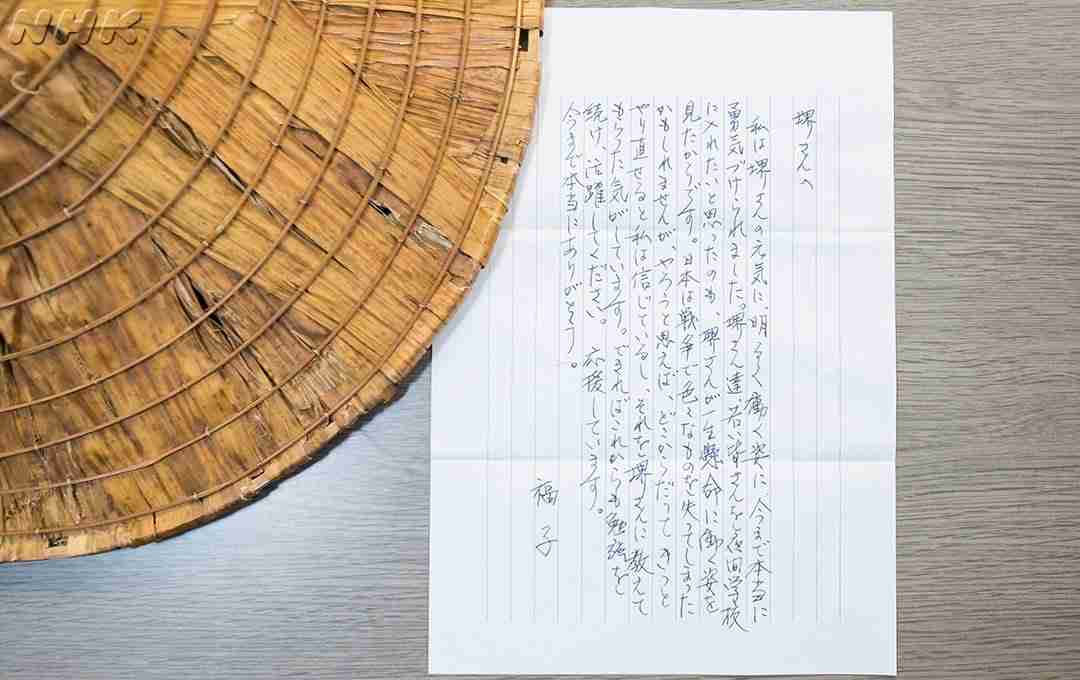 NHK
堺さんへ
私は堺さんの元気に明るく働く姿に、今まで本当に
勇気づけられました。堺さん達、若い皆さんを夜間学校
に入れたいと思ったのも、堺さんが一生懸命に働く姿を
見たからです。日本は戦争で色々なものを失ってしまった
かもしれませんが、やろうと思えば、どこからだって きっと
やり直せると私は信じているし、それを堺さんに教えて
もらった気がしています。できればこれからも勉強を
続け、活躍してください。 応援しています。
今まで本当にありがとう。
福子